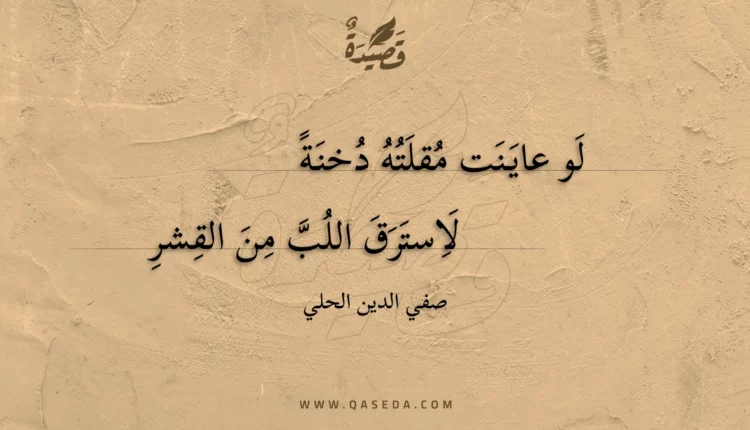 قَصِيْدَةٌ
لَو عايَنَت مُقلَتُهُ دُخنَةً
لَاِستَرَقَ اللُبَّ مِنَ القِشرِ
صفي الدين الحلي
WWW.QASEDA.COM